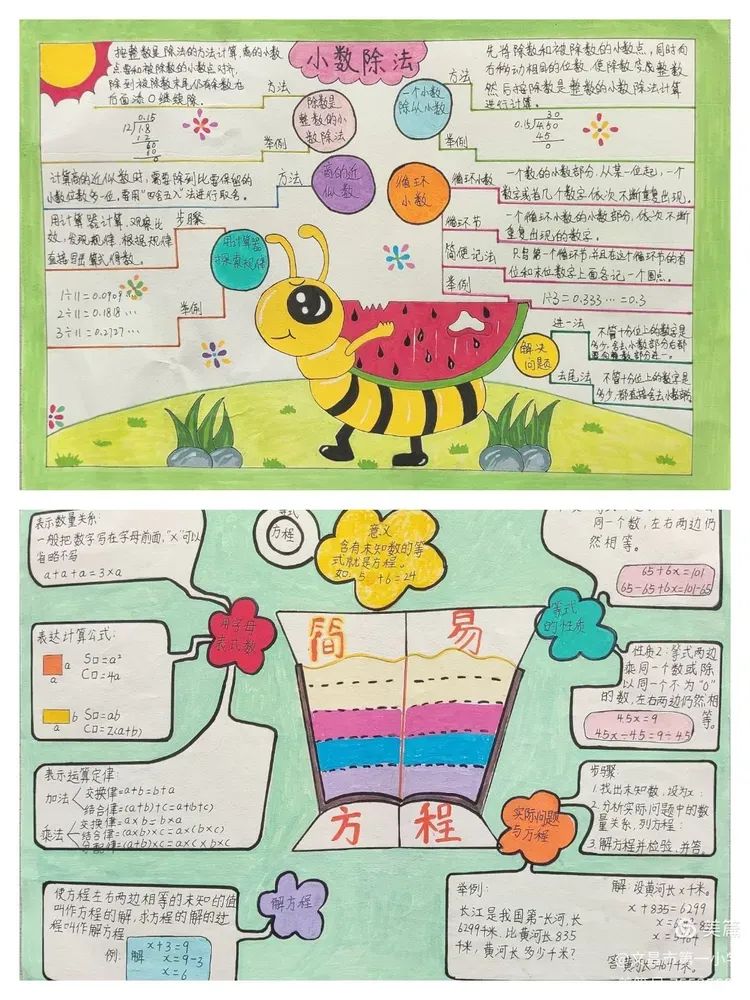 小数除法
按整数是除法的方法计算,商的小数
点要和被除数的小数点对齐,
除到被除数末尾仍有余数在
后面添0继续除.
方法
0.15
12)1.8
12
60
60
0
举例
除数是
整数的小
数除法
先将除数和被除数的小数点,同时向
右移动相同的位数,使除数变成整数
然后按除数是整数的小数除法计算
进行计算.
方法
一个小数
除以小数
30
0.15)4.50
45
0
举例
计算商的近似数时,需要除到比要保留的
小数位数多一位,要用"四舍五入"法进行取名.
方法
商的近
似数
循环
小数
循环小数
一个数的小数部分,从某一位起,一个
数字或者几个数字依次不断重复出现.
循环节
一个循环小数的小数部分,依次不断
重复出现的数字.
简便记法
只写第一个循环节,并且在这个循环节的首
位和末位数字上面各记一个圆点.
举例
1÷3=0.333…=0.3
用计算器计算,观察比
效,发现规律,根据规律
直接写出算式得数.
步骤
用计算器
探索规律
1÷11=0.0909…
2÷11=0.1818…
3÷11=0.2727…
举例
解决
问题
进一法
不管十分位上的数字是
去尾法
不管十分位上的数字是
多少,都直接舍去小数部
表示数量关系:
一般把数字写在字母前面,"×"可以
省略不写
a+a+a=3×a
方程
意义
含有未知数的等
式就是方程.
如:5 +6=24
同一个数,左右两边仍
然相等。
65+6x=101
65-65+6x=101-65
用字母
表式数
等式
的性质
简易
方程
表达计算公式:
a
a
S□=a²
C□=4a
b
a
S□=ab
C□=2(a+b)
性质2:等式两边
乘同一个数或除
以同一个不为"0"
的数,左右两边仍然相
等。
4.5x=9
4.5x÷4.5=9÷4.5
表示运算定律:
加法
交换律=a+b=b+a
结合律=(a+b)+c=a+(b+c)
乘法
交换律=a×b=b×a
结合律=(a×b)×c=a×(b×c)
分配律=(a+b)×c=a×c×b×c
实际问题
与方程
步骤:
1.找出未知数,设为x;
2.分析实际问题中的数
量关系,列方程;
3.解方程并检验,并答。
使方程左右两边相等的未知的值
叫作方程的解,求方程的解的过
程叫作解方程
例: 解 x+3=9
x=9-3
x=6
解方程
举例:
长江是我国第一长河,长
6299千米,比黄河长835
千米,黄河长多少千米?
解:设黄河长x千米。
x+835=6299
x=5464
美篇
@文昌市第一小学